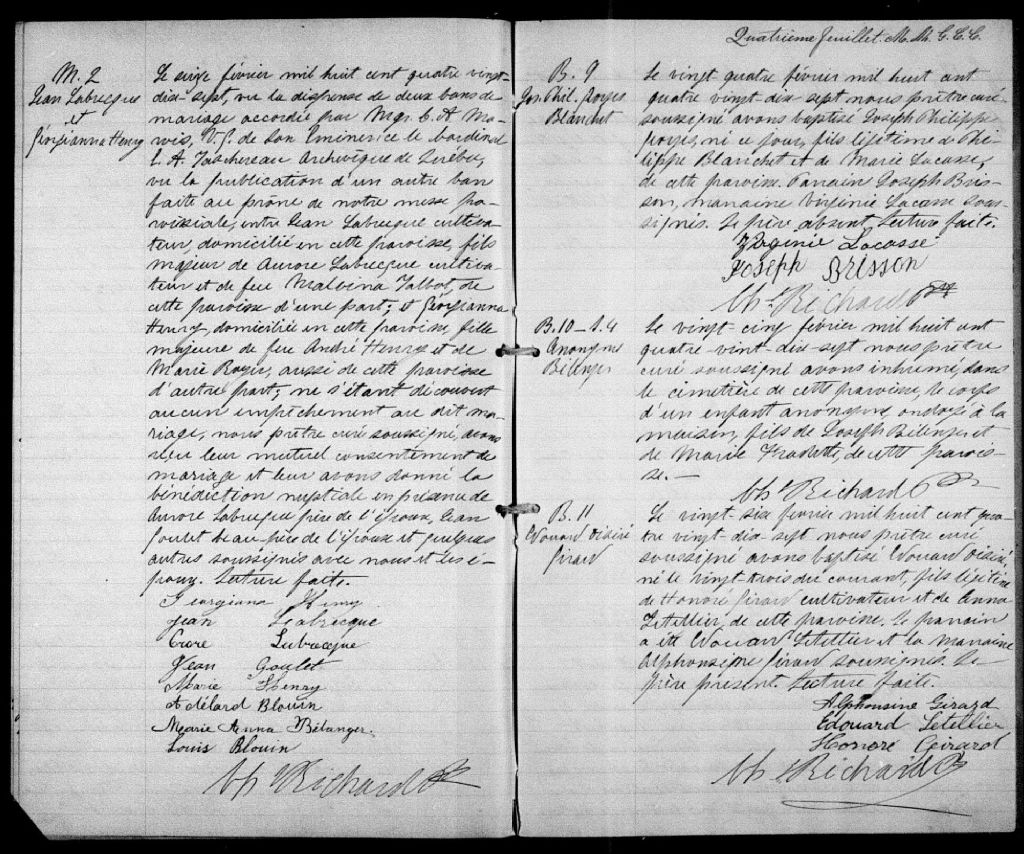 M. 2
Jean Labrecque
et
Géorgianna Henry
Le seize février mil huit cent quatre vingt-
dix-sept, vu la dispense de deux bans de
mariage accordée par Mgr. C. A. Ma-
rois, V. G. de Son Eminence le Cardinal
E. A. Taschereau Archevêque de Québec,
vu la publication d'un autre ban
faite au prône de notre messe pa-
roissiale, entre Jean Labrecque cultiva-
teur, domicilié en cette paroisse, fils
majeur de Aurore Labrecque cultiva-
teur et de feu Malvina Talbot, de
cette paroisse d'une part; et Géorgianna
Henry, domiciliée en cette paroisse, fille
majeure de feu André Henry et de
Marie Roger, aussi de cette paroisse
d'autre part; ne s'étant découvert
aucun empêchement au dit ma-
riage, nous prêtre curé soussigné, avons
reçu leur mutuel consentement de
mariage et leur avons donné la
bénédiction nuptiale en présence de
Aurore Labrecque père de l'époux, Jean
Goulet beau-père de l'époux et quelques
autres soussignés avec nous et les é-
poux. Lecture faite.
Georgiana Henry
Jean Labrecque
Labrecque
Jean Goulet
Marie Henry
Adélard Blouin
Marie Anna Bélanger.
Louis Blouin
Chs Richard Ptre
Quatrième feuillet. M. M. C. C. C.
B. 9
Jos. Phil. Georges
Blanchet
Le vingt quatre février mil huit cent
quatre vingt-dix sept nous prêtre curé
soussigné avons baptisé Joseph Philippe
Georges, né ce jour, fils légitime de Phi-
lippe Blanchet et de Marie Lacasse,
de cette paroisse. Parrain Joseph Bris-
son, marraine Virginie Lacasse sous-
signés. Le père absent. Lecture faite.
Virginie Lacasse
Joseph Brisson
Chs Richard Ptre
B. 10 - S. 4
Anonyme
Bélenger
Le vingt-cinq février mil huit cent
quatre-vint-dix-sept nous prêtre
curé soussigné avons inhumé, dans
le cimetière de cette paroisse, le corps
d'un enfant anonyme, ondoyé à la
maison, fils de Joseph Bélenger et
de Marie Fradette, de cette parois-
se. —
Chs Richard Ptre
B. 11
Edouard Désiré
Girard
Le vingt-six février mil huit cent qua-
tre vingt-dix-sept nous prêtre curé
soussigné avons baptisé Edouard Désiré,
né le vingt-trois du courant, fils légitime
de Honoré Girard cultivateur et de Anna
Letellier, de cette paroisse. Le parrain
a été Edouard Letellier et la marraine
Alphonsine Girard soussignés. Le
père présent. Lecture faite.
Alphonsine Girard
Edouard Letellier
Honoré Girard
Chs Richard Ptre